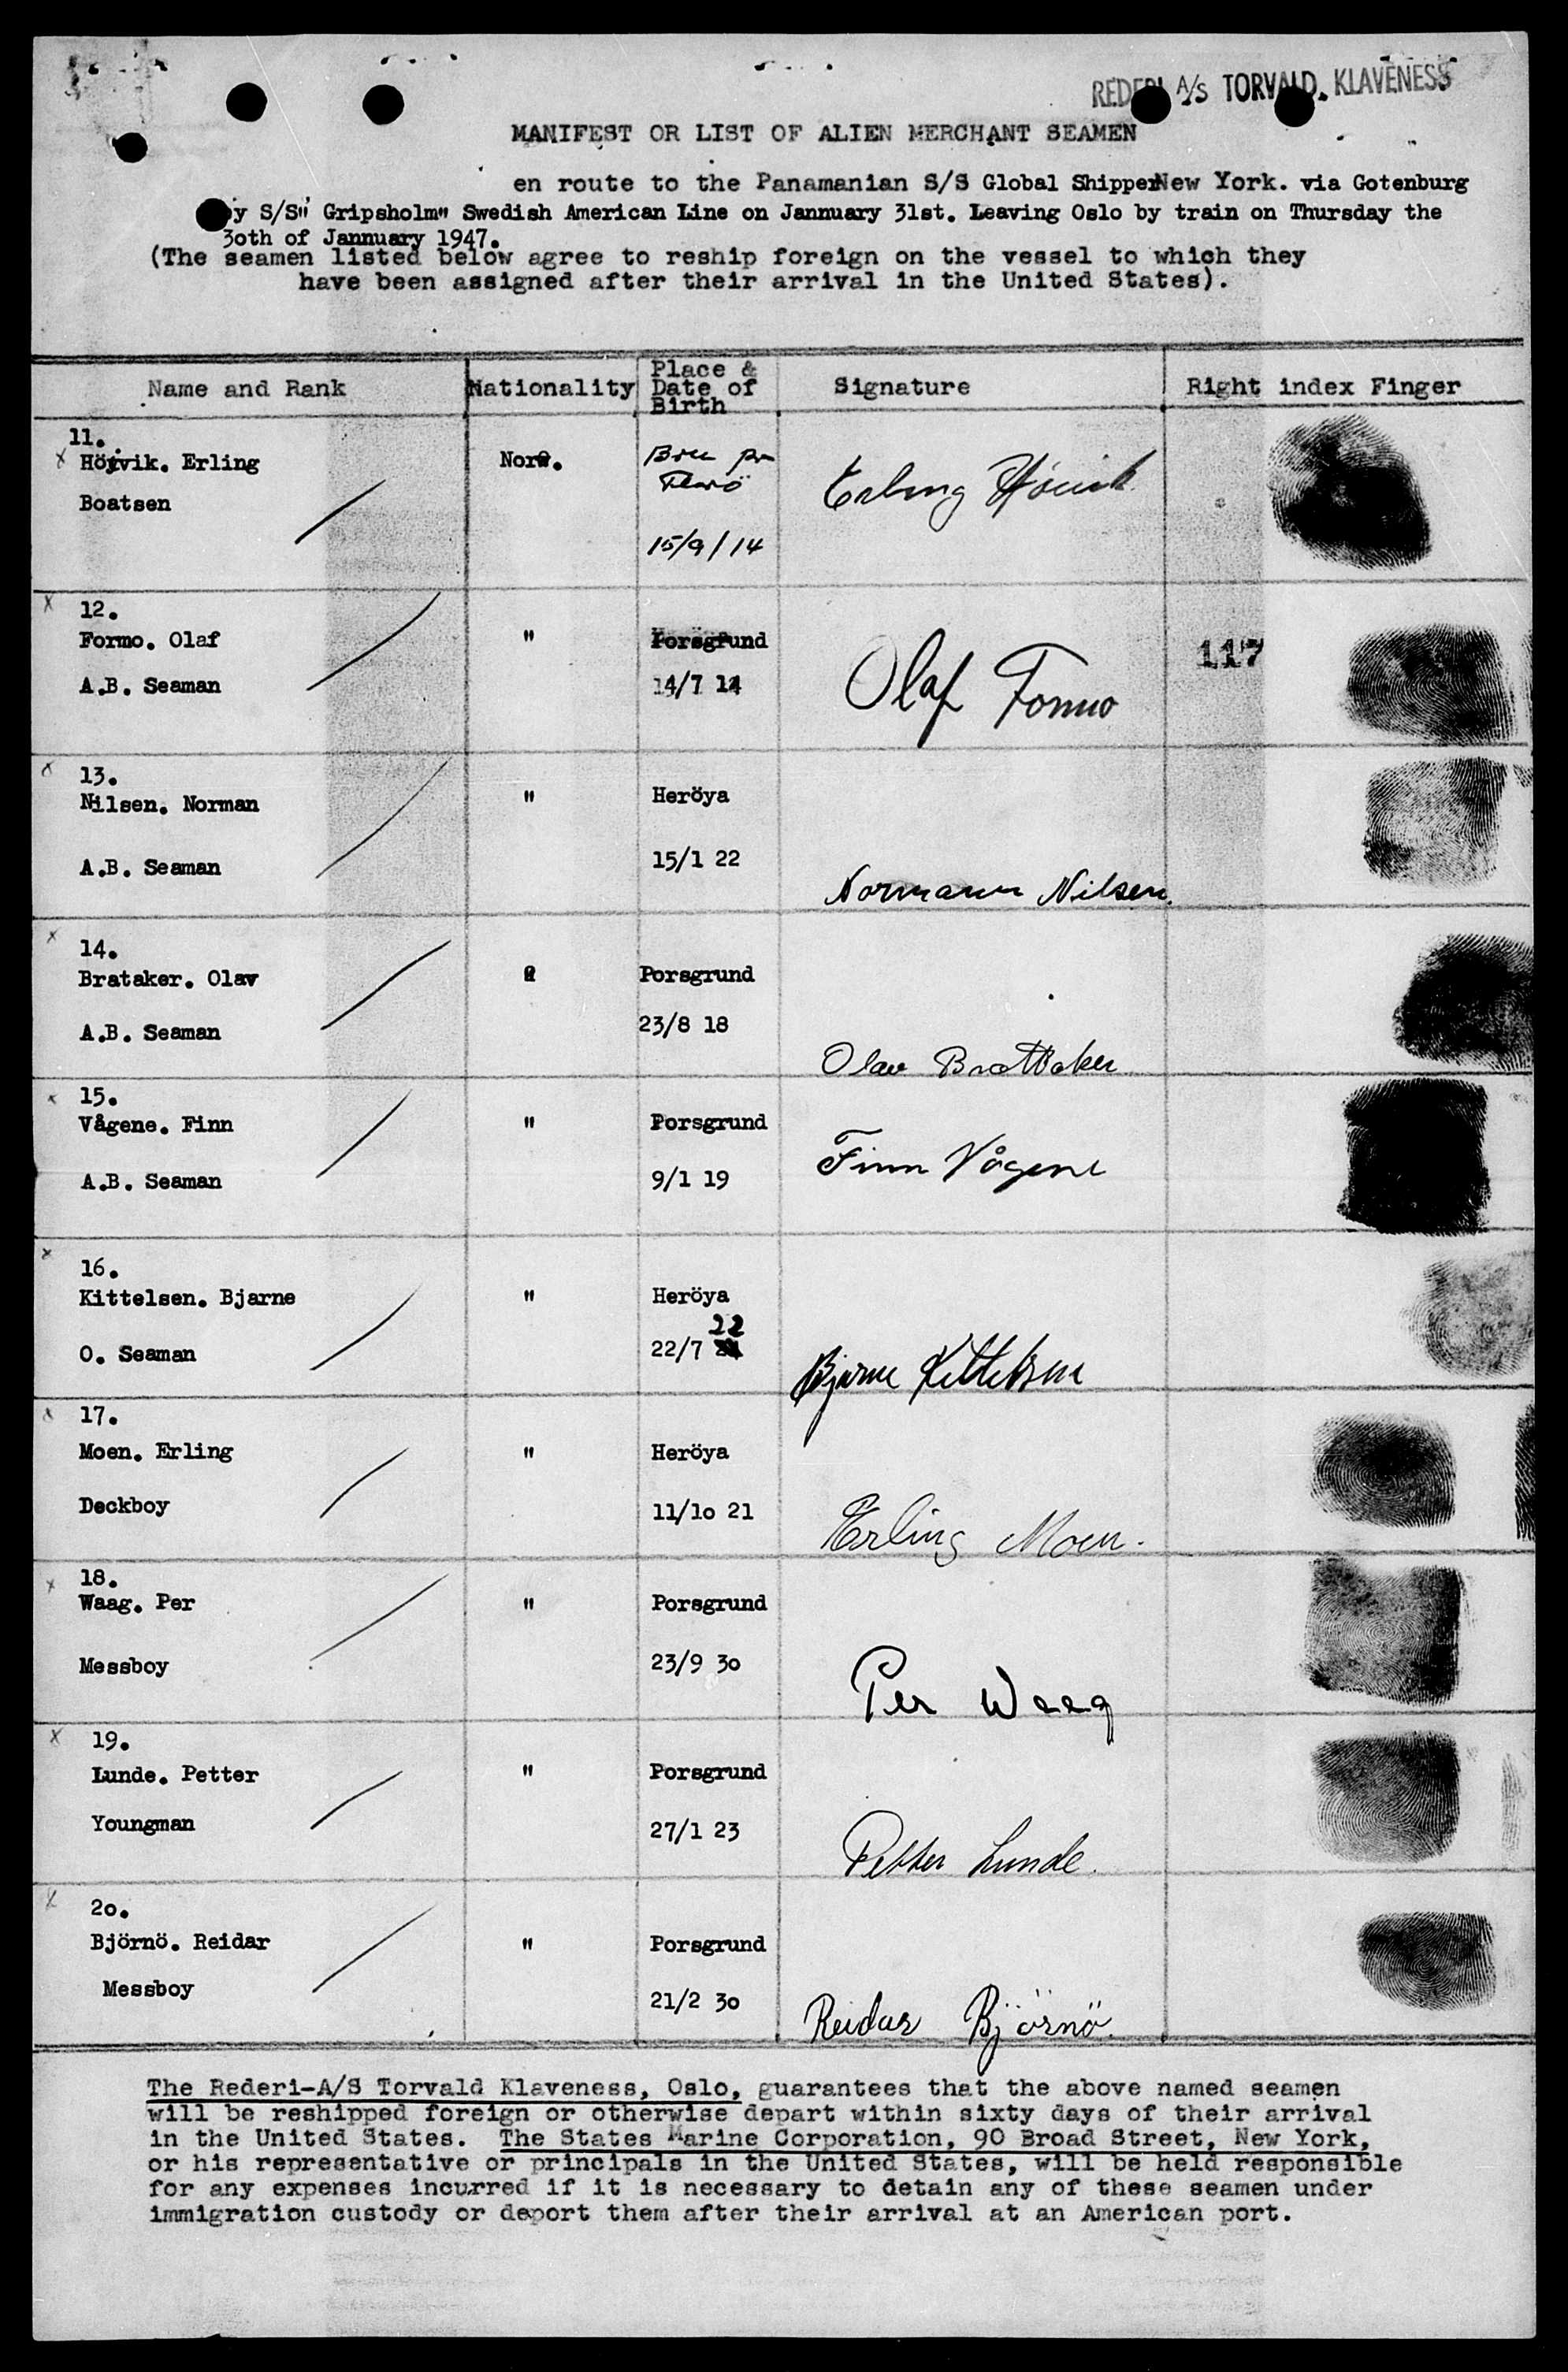 REDERI A/S TORVALD. KLAVENESS
MANIFEST OR LIST OF ALIEN MERCHANT SEAMEN
en route to the Panamanian S/S Global Shipper New York. via Gotenburg
by S/S" Gripsholm" Swedish American Line on Jannuary 31st. Leaving Oslo by train on Thursday the
3oth of Jannuary 1947.
(The seamen listed below agree to reship foreign on the vessel to which they
have been assigned after their arrival in the United States).
Name and Rank Nationality Place & Date of Birth Signature Right index Finger
11.
x Höyvik. Erling Norw.
Boatsen
15/9/14
Erling
x 12.
Formo. Olaf " Porsgrund
A.B. Seaman 14/7 14
Olaf Formo
117
x 13.
Nilsen. Norman " Heröya
A.B. Seaman 15/1 22
Normann Nilsen.
x 14.
Brataker. Olav Porsgrund
A.B. Seaman 23/8 18
Olav Brattaker
x 15.
Vågene. Finn " Porsgrund
A.B. Seaman 9/1 19
Finn Vågene
x 16.
Kittelsen. Bjarne " Heröya
22
O. Seaman 22/7
Bjarne Kittelsen
x 17.
Moen. Erling " Heröya
Deckboy 11/1o 21
Erling Moen.
x 18.
Waag. Per " Porsgrund
Messboy 23/9 3o
Per Waag
x 19.
Lunde. Petter " Porsgrund
Youngman 27/1 23
Petter Lunde.
x 2o.
Björnö. Reidar " Porsgrund
Messboy 21/2 3o
Reidar Björnö.
The Rederi-A/S Torvald Klaveness, Oslo, guarantees that the above named seamen
will be reshipped foreign or otherwise depart within sixty days of their arrival
in the United States. The States Marine Corporation, 90 Broad Street, New York,
or his representative or principals in the United States, will be held responsible
for any expenses incurred if it is necessary to detain any of these seamen under
immigration custody or deport them after their arrival at an American port.